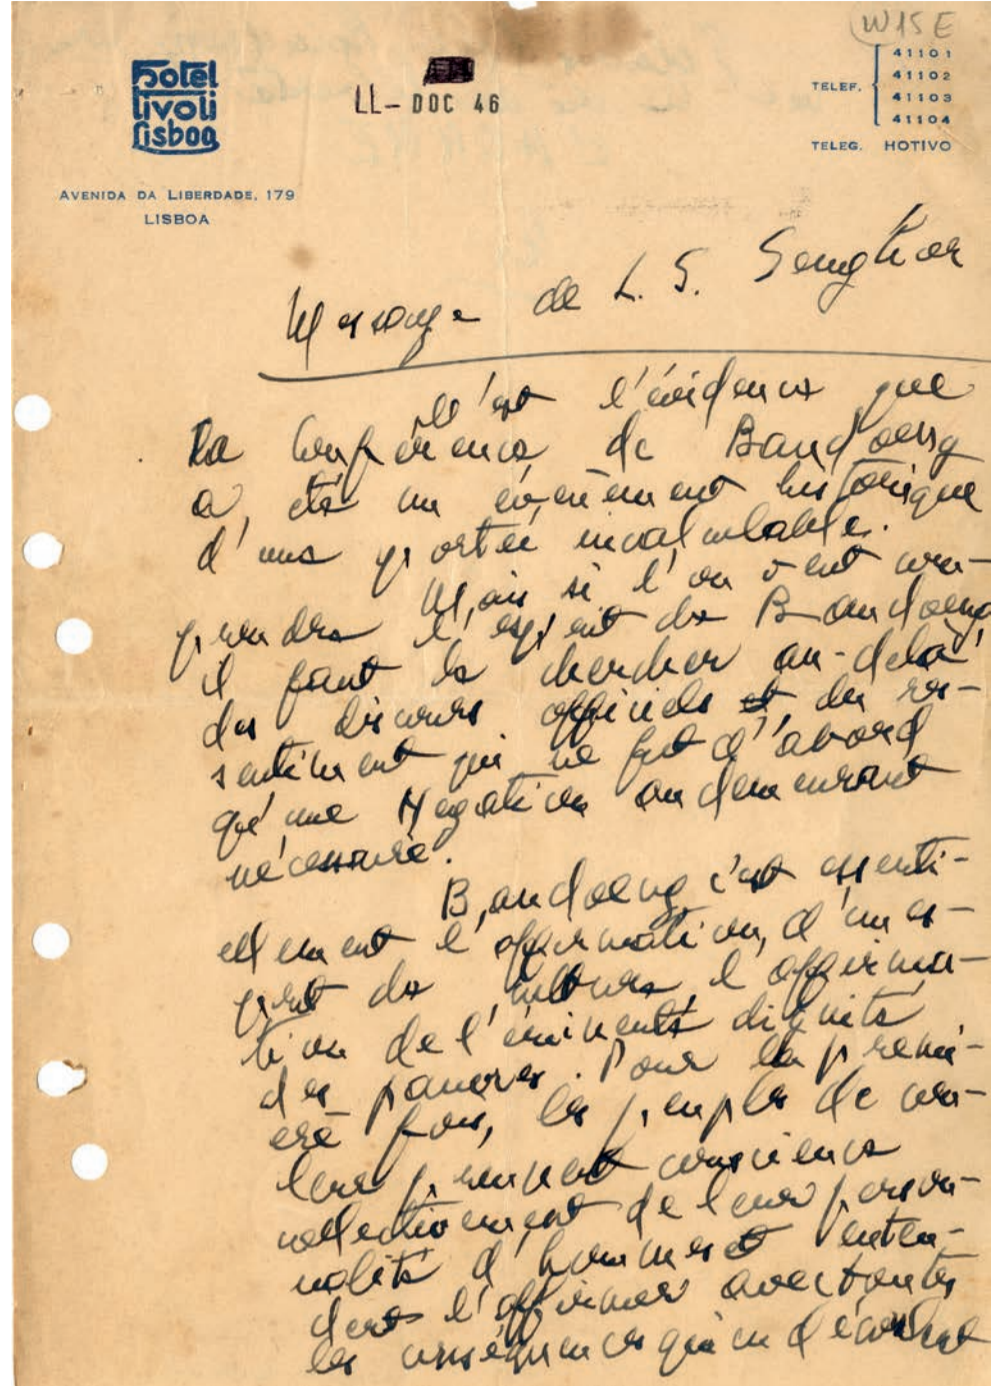 W15E
Hotel
Tivoli
Lisboa
LL- DOC 46
TELEF.
41101
41102
41103
41104
TELEG. HOTIVO
AVENIDA DA LIBERDADE, 179
LISBOA
Message de L. S. Senghor
C'est l'évidence que
la Conférence de Bandoeng
a été un événement historique
d'une portée incalculable.
Mais si l'on veut com-
prendre l'esprit de Bandoeng
il faut le chercher au-delà
des discours officiels et du res-
sentiment qui ne fut d'abord
qu'une Négation au demeurant
nécessaire.
Bandoeng, c'est essenti-
ellement l'affirmation, d'un es-
prit de culture, l'affirma-
tion de l'éminente dignité
des pauvres. Pour la premi-
ère fois, les peuples de cou-
leur prennent conscience
collectivement de leur person-
nalité d'hommes et enten-
dent l'affirmer avec toutes
les conséquences qui en découlent